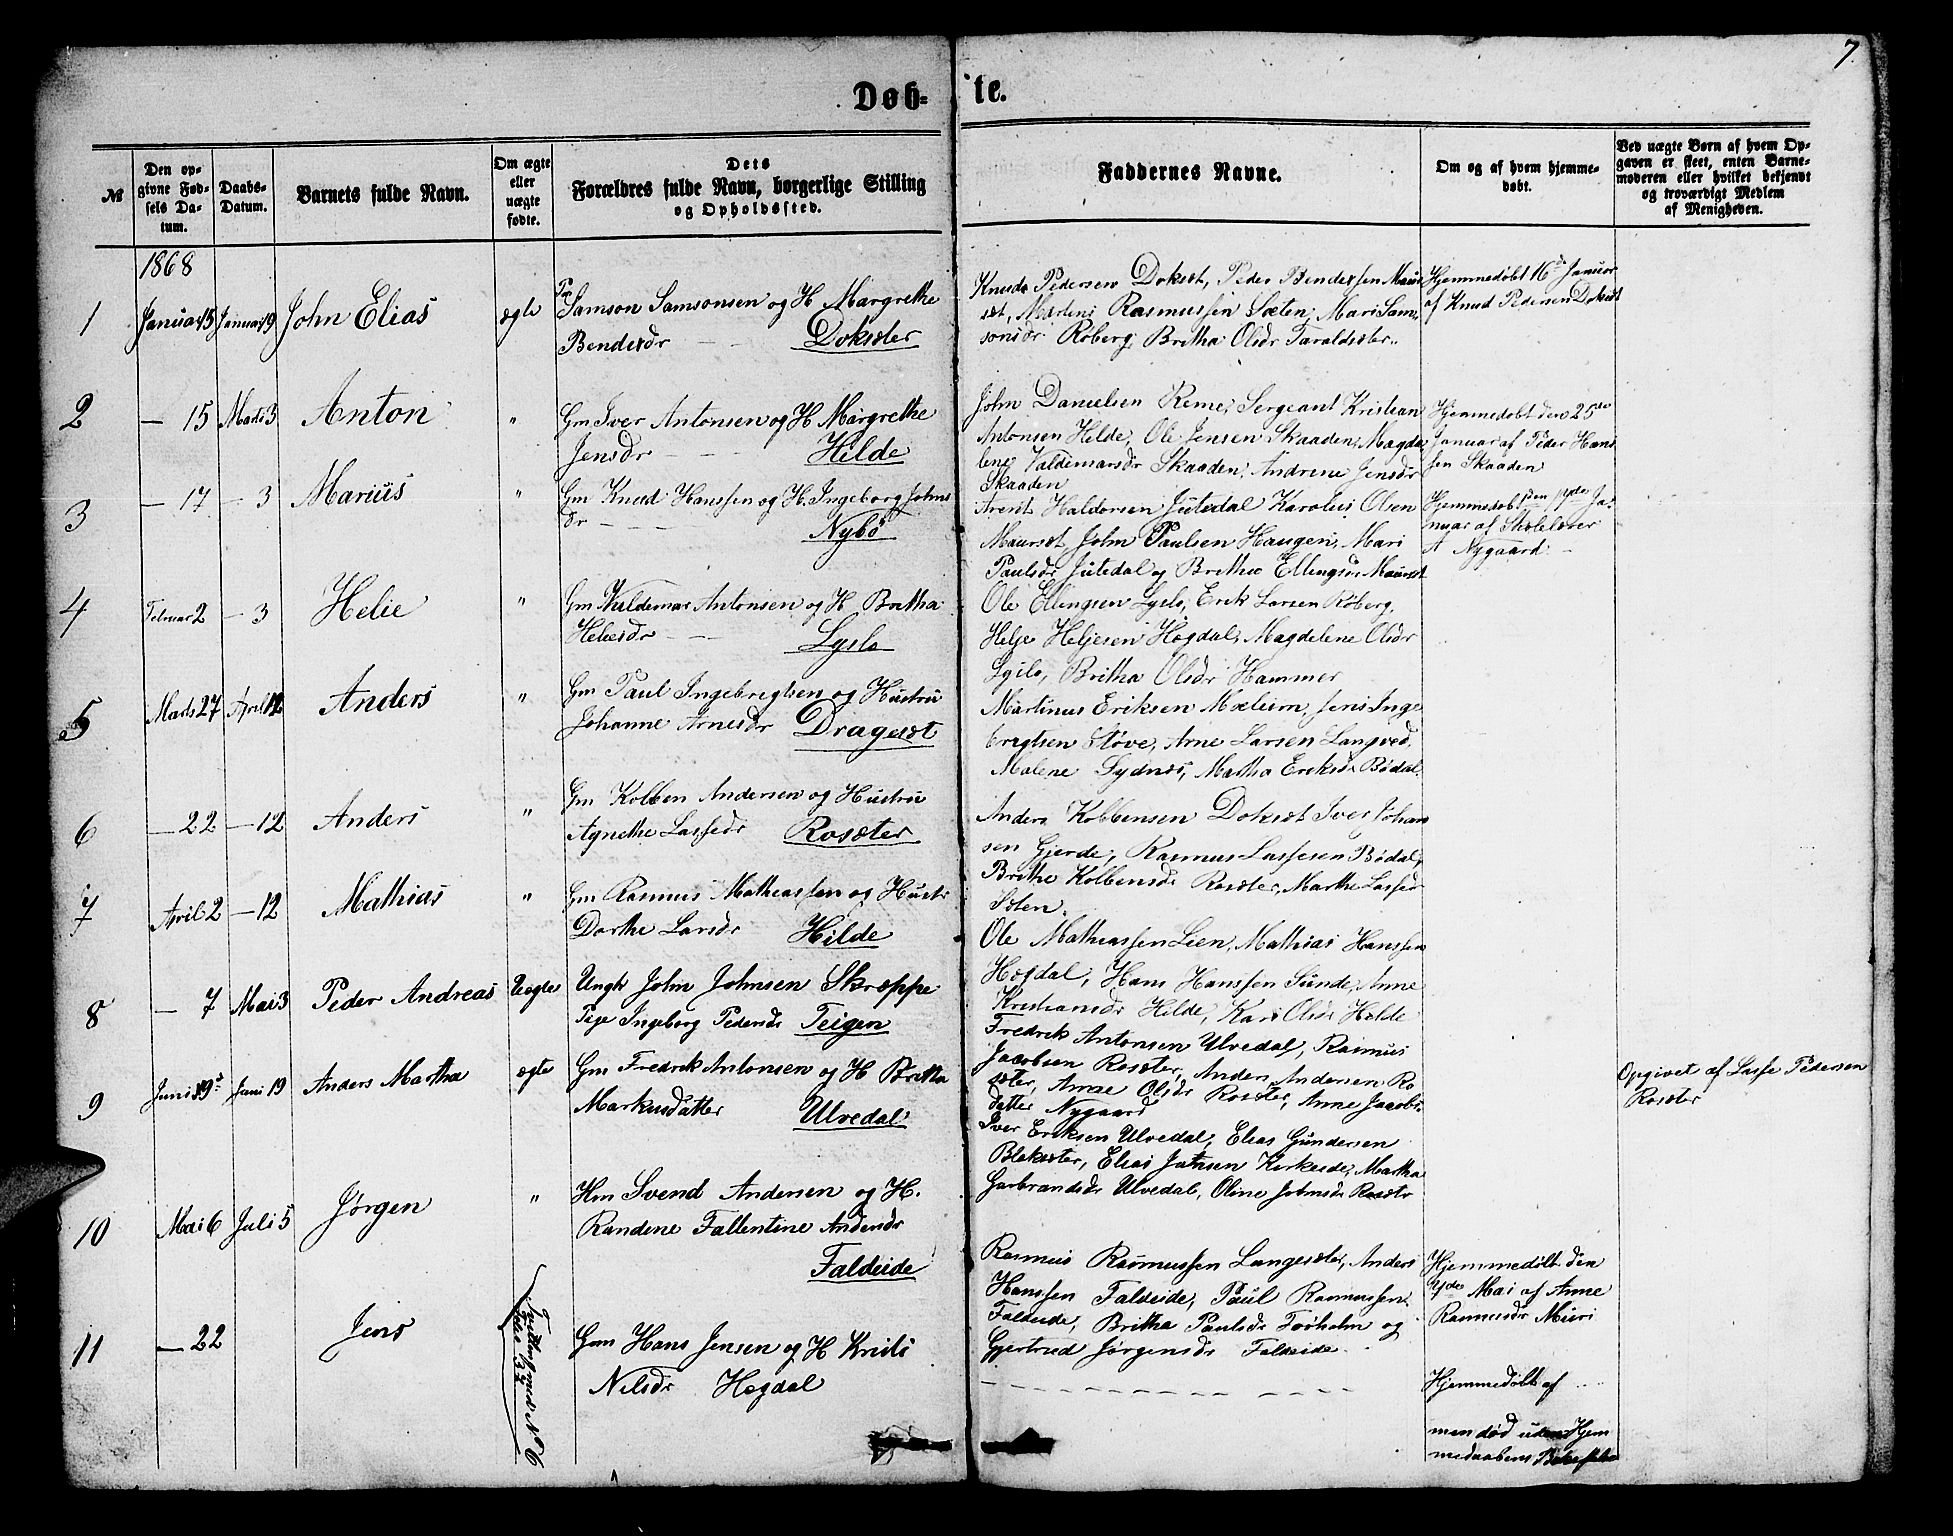 7.
Døb-te.
№
Den opgivne Fødsels Datum.
Daabs-Datum.
Barnets fulde Navn.
Om ægte eller uægte fødte.
Dets Forældres fulde Navn, borgerlige Stilling og Opholdssted.
Faddernes Navne.
Om og af hvem hjemmedøbt.
Ved uægte Børn af hvem Opgaven er skeet, enten Barnemoderen eller hvilket bekjendt og troværdigt Medlem af Menigheden.
1868
1 Januar 15 Januar 19 John Elias ægte
Samson Samsonsen og H Margrethe
Bendixdr Doksæter
Knud Pedersen Doksæt, Peder Bendixsen Maur
sæt, Martens Rasmussen Sæten, Mari Sam
sonsdr Roberg, Britha Olsdr Taraldsæter.
Hjemmedøbt 16de Januar
af Knud Pedersen Doksæt
2 — 15 Marts 3 Anton "
Gm Iver Antonsen og H Margrethe
Jensdr Hilde
John Danielsen Reme, Sergeant Kristian
Antonsen Hilde, Ole Jensen Skaaden, Magda
lene Valdemarsdr Skaaden, Andrine Jensdr
Skaaden
Hjemmedøbt den 25de
Januar af Peder Hans
sen Skaaden
3 — 17 — 3 Marius "
Gm Knud Hanssen og H. Ingeborg Johns
dr Nybø
Arent Haldorsen Jutedal Karolus Olsen
Maursæt John Paulsen Haugen, Mari
Paulsdr Jutedal og Brithe Ellingsdr Maursæt
Hjemmedøbt den Ja-
nuar af Skolelærer
A Nygaard
4 Februar 2 — 3 Helie "
Gm Valdemar Antonsen og H Britha
Heliesdr Lyslo
Ole Ellingsen Lyslo, Erik Larsen Roberg,
Helje Heljesen Høgdal, Magdelene Olsdr
Lyslo, Britha Olsdr Hammer
5 Marts 27 April 12 Anders "
Gm Paul Ingebrigtsen og Hustru
Johanne Arnesdr Dragesæt
Martinus Eriksen Mæleim, Jens Inge
brigtsen Støve, Arne Larsen Langved,
Malene Sydnes, Martha Eriksdr Bødal.
6 — 22 — 12 Anders "
Gm Kolben Andersen og Hustru
Agnethe Lassedr Rosæter
Anders Kolbensen Doksæt Iver Johan
sen Gjerde, Rasmus Lassesen Bødal,
Brithe Kolbensdr Rosæter, Marthe Lassedr
Sæten.
7 April 2 — 12 Mathias "
Gm Rasmus Mathiassen og Hustr
Dorthe Larsdr Hilde
Ole Mathiassen Lien, Mathias Hanssen
Høgdal, Hans Hanssen Sunde, Anne
Kristiansdr Hilde, Kari Olsdr Hilde
8 — 7 Mai 3 Peder Andreas Uægte
Ungk John Johnsen Skroppe
Pige Ingeborg Pedersdr Teigen
Fredrik Antonsen Ulvedal, Rasmus
Jacobsen Rosæter, Anders Andersen Ro
sæter, Anne Olsdr Rosæter, Anne Jacobs
datter Nygaard
Opgivet af Lasse Pedersen
Rosæter
9 Juni Juni 19 Anders Martha ægte
Gm Fredrik Antonsen og H Britha
Markusdatter Ulvedal
Iver Eriksen Ulvedal, Elias Gundersen
Bleksæter, Elias Jetnsen Kirkeide, Martha
Garbrandsdr Ulvedal, Oline Johnsdr Rosætr
10 Mai 6 Juli 5 Jørgen "
Hm Svend Andersen og H.
Randine Fallentine Andersdr
Faldeide
Rasmus Rasmussen Langesæter, Anders
Hanssen Faldeide, Paul Rasmussen
Faldeide, Britha Paulsdr Torholm og
Gjertrud Jørgensdr Faldeide
Hjemmedøbt den
Mai af Anne
Rasmusdr Muri
11 — 22 Jens
Tvilling med № 6
Gm Hans Jensen og H Kristi
Nilsdr Høgdal
Hjemmedøbt af
men død uden Hjem
medaabens